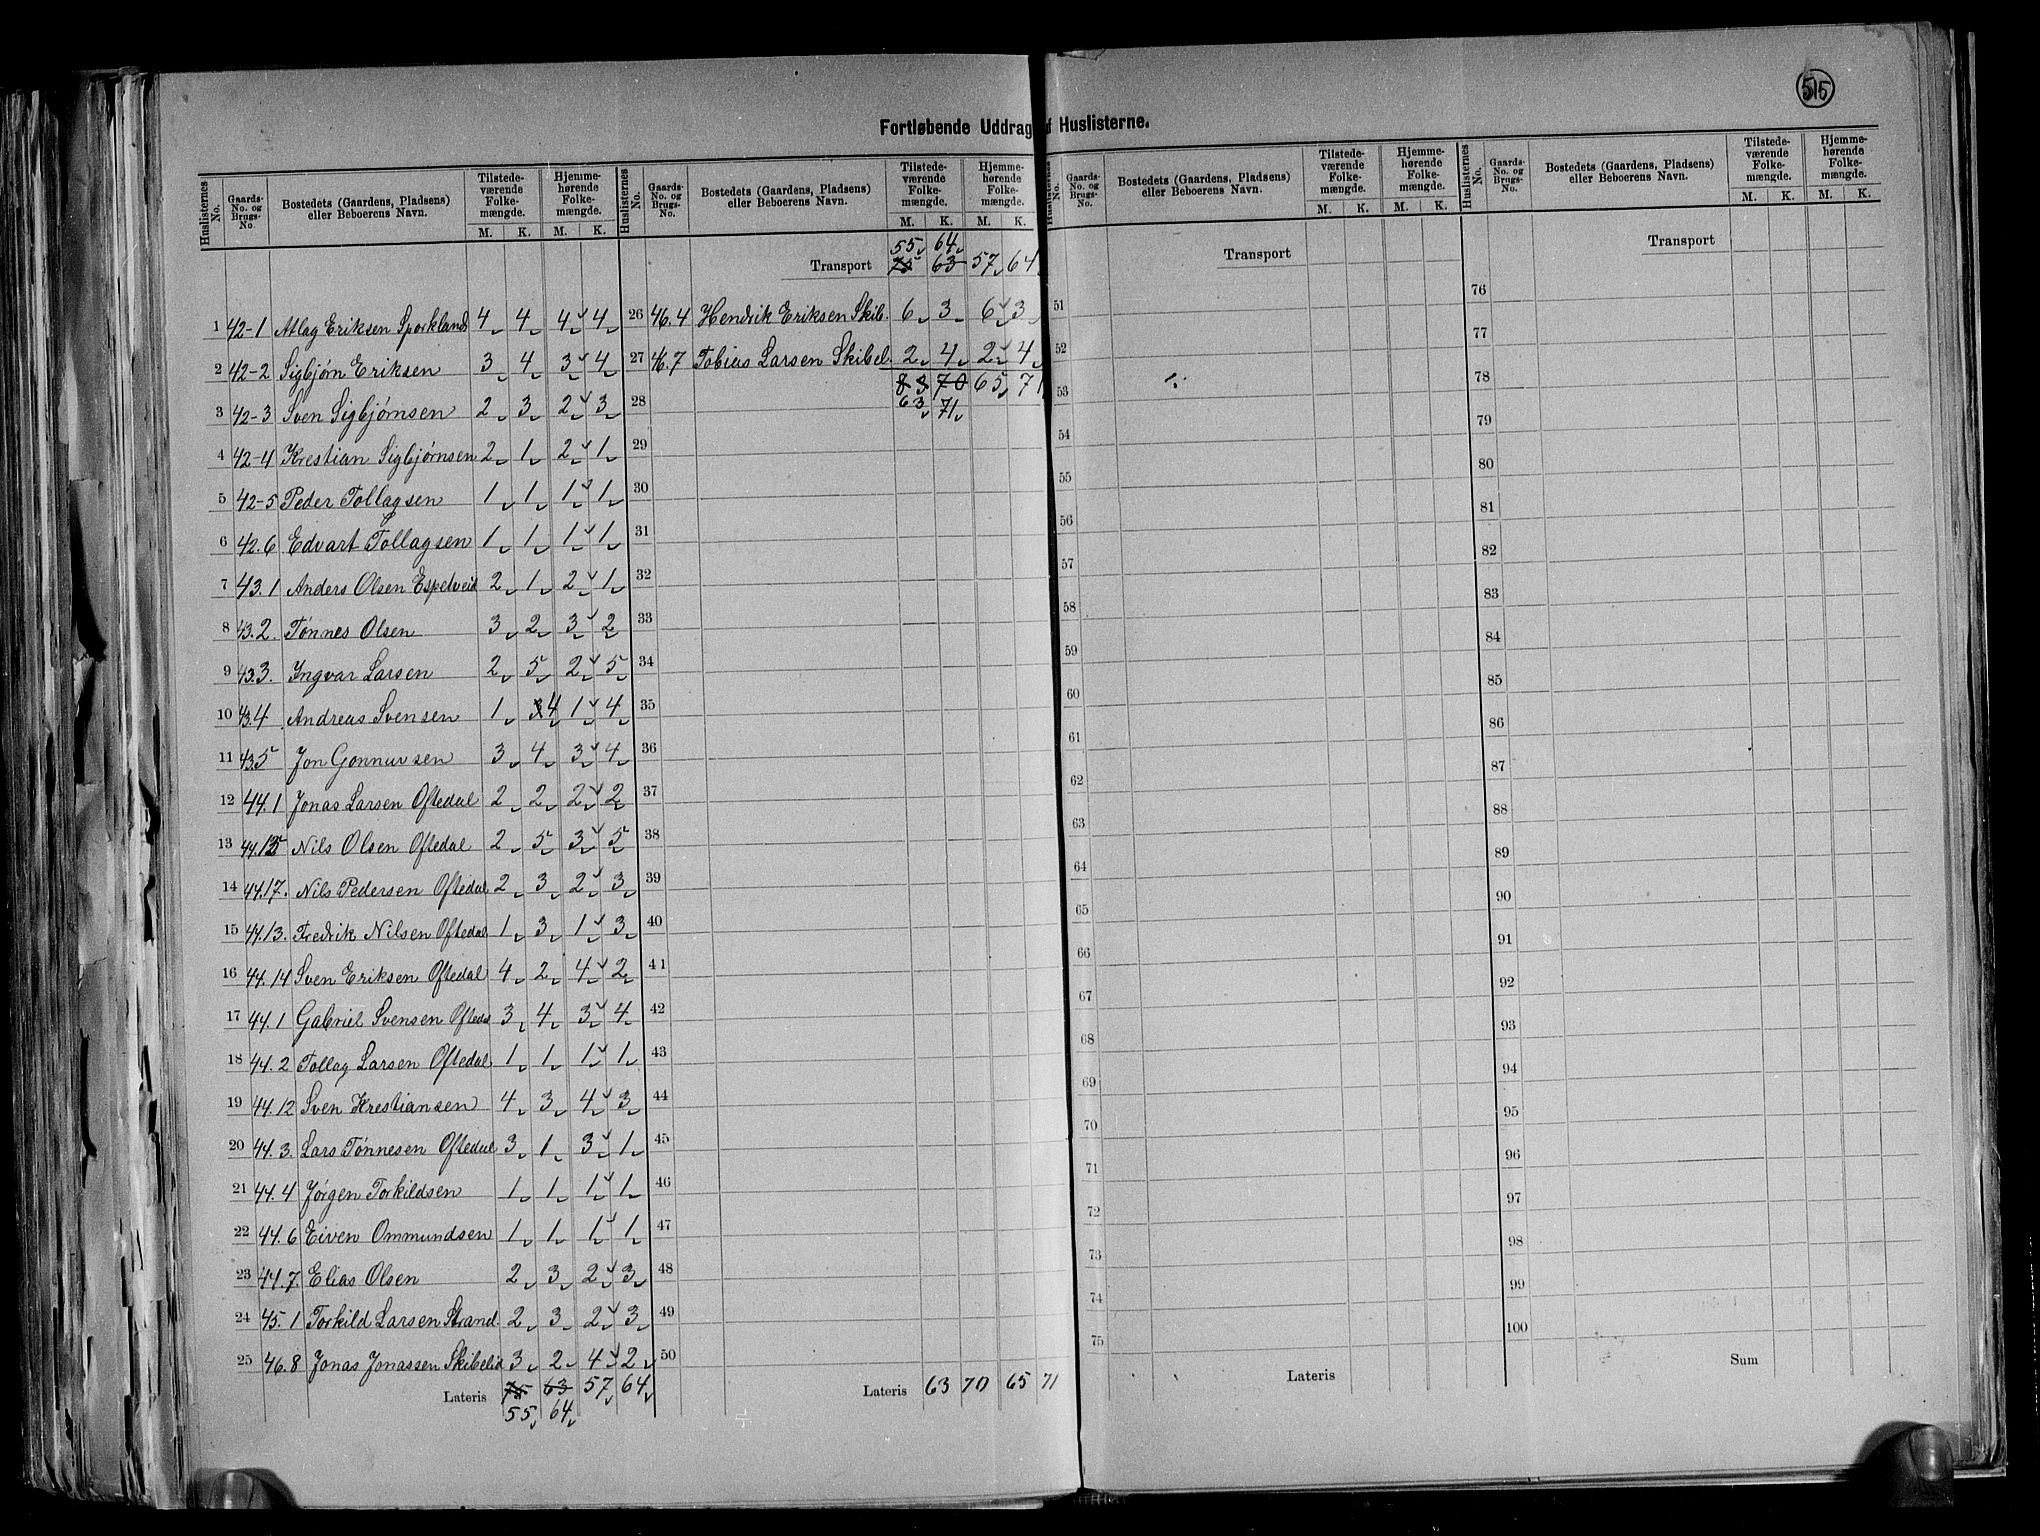 515
Fortløbende Uddrag af Huslisterne.
Huslisternes No. Gaards-No. og Brugs-No. Bostedets (Gaardens, Pladsens) eller Beboerens Navn. Tilstedeværende Folkemængde. M. K. Hjemmehørende Folkemængde. M. K.
1 42-1 Atlag Eriksen Sporkland 4 4 4 4
2 42-2 Sigbjørn Eriksen 3 4 3 4
3 42-3 Sven Sigbjørnsen 2 3 2 3
4 42-4 Krestian Sigbjørnsen 2 1 2 1
5 42-5 Peder Tollagsen 1 1 1 1
6 42.6 Edvart Tollagsen 1 1 1 1
7 43.1 Anders Olsen Espetveid 2 1 2 1
8 43.2 Tønnes Olsen 3 2 3 2
9 43.3. Ingvar Larsen 2 5 2 5
10 43.4 Andreas Svensen 1 3 4 1 4
11 43.5 Jon Gonnuvsen 3 4 3 4
12 44.1 Jonas Larsen Oftedal 2 2 2 2
13 44.15 Nils Olsen Oftedal 2 5 3 5
14 44.17. Nils Pedersen Oftedal 2 3 2 3
15 44.13. Fredrik Nilsen Oftedal 1 3 1 3
16 44.14 Sven Eriksen Oftedal 4 2 4 2
17 44.1 Gabriel Svensen Oftedal 3 4 3 4
18 44.2 Tollag Larsen Oftedal 1 1 1 1
19 44.12 Sven Krestiansen 4 3 4 3
20 44.3. Lars Tønnesen Oftedal 3 1 3 1
21 44.4 Jørgen Torkildsen 1 1 1 1
22 44.6 Eiven Ommundsen 1 1 1 1
23 44.7. Elias Olsen 2 3 2 3
24 45.1 Torkild Larsen Strand 2 3 2 3
25 46.8 Jonas Jonassen Skibelid 3 2 4 2
Lateris 75 63 57 64
55 64
Huslisternes No. Gaards-No. og Brugs-No. Bostedets (Gaardens, Pladsens) eller Beboerens Navn. Tilstedeværende Folkemængde. M. K. Hjemmehørende Folkemængde. M. K.
55 64
Transport 75 63 57 64
26 46.4 Hendrik Eriksen Skib. 6 3 6 3
27 46.7 Tobias Larsen Skibel. 2 4 2 4
83 70 65 71
28 63 71
29
30
31
32
33
34
35
36
37
38
39
40
41
42
43
44
45
46
47
48
49
50
Lateris 63 70 65 71
Huslisternes No. Gaards-No. og Brugs-No. Bostedets (Gaardens, Pladsens) eller Beboerens Navn. Tilstedeværende Folkemængde. M. K. Hjemmehørende Folkemængde. M. K.
Transport
51
52
53
54
55
56
57
58
59
60
61
62
63
64
65
66
67
68
69
70
71
72
73
74
75
Lateris
Huslisternes No. Gaards-No. og Brugs-No. Bostedets (Gaardens, Pladsens) eller Beboerens Navn. Tilstedeværende Folkemængde. M. K. Hjemmehørende Folkemængde. M. K.
Transport
76
77
78
79
80
81
82
83
84
85
86
87
88
89
90
91
92
93
94
95
96
97
98
99
100
Sum